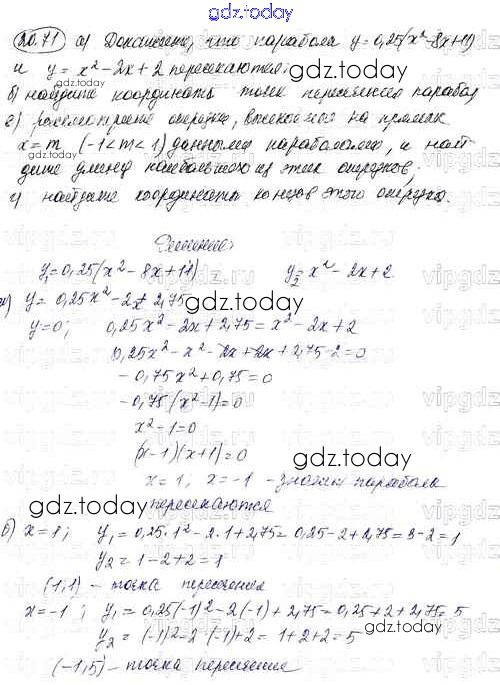 gdz.today
20.71 а) Докажите, что парабола y = 0,25(x² - 8x + 11)
и y = x² - 2x + 2 пересекаются;
gdz.today
б) найдите координаты точек пересечения парабол
в) рассмотрите отрезки, высекаемые на прямых
x = m (-1 < m < 1) данными параболами, и най-
дите длину наибольшего из этих отрезков;
gdz.today
г) найдите координаты концов этого отрезка.
Решение:
y₁ = 0,25(x² - 8x + 11) y₂ = x² - 2x + 2
а) y = 0,25x² - 2x + 2,75
gdz.today
y = 0; 0,25x² - 2x + 2,75 = x² - 2x + 2
0,25x² - x² - 2x + 2x + 2,75 - 2 = 0
- 0,75x² + 0,75 = 0
- 0,75(x² - 1) = 0
x² - 1 = 0
gdz.today
(x - 1)(x + 1) = 0
x = 1; x = -1 - значит парабола
gdz.today
пересекаются
б) x = 1; y₁ = 0,25·1² - 2·1 + 2,75 = 0,25 - 2 + 2,75 = 3 - 2 = 1
y₂ = 1 - 2 + 2 = 1
(1,1) - точка пересечения
x = -1; y₁ = 0,25(-1)² - 2(-1) + 2,75 = 0,25 + 2 + 2,75 = 5
gdz.today
y₂ = (-1)² - 2(-1) + 2 = 1 + 2 + 2 = 5
(-1,5) - точка пересечения